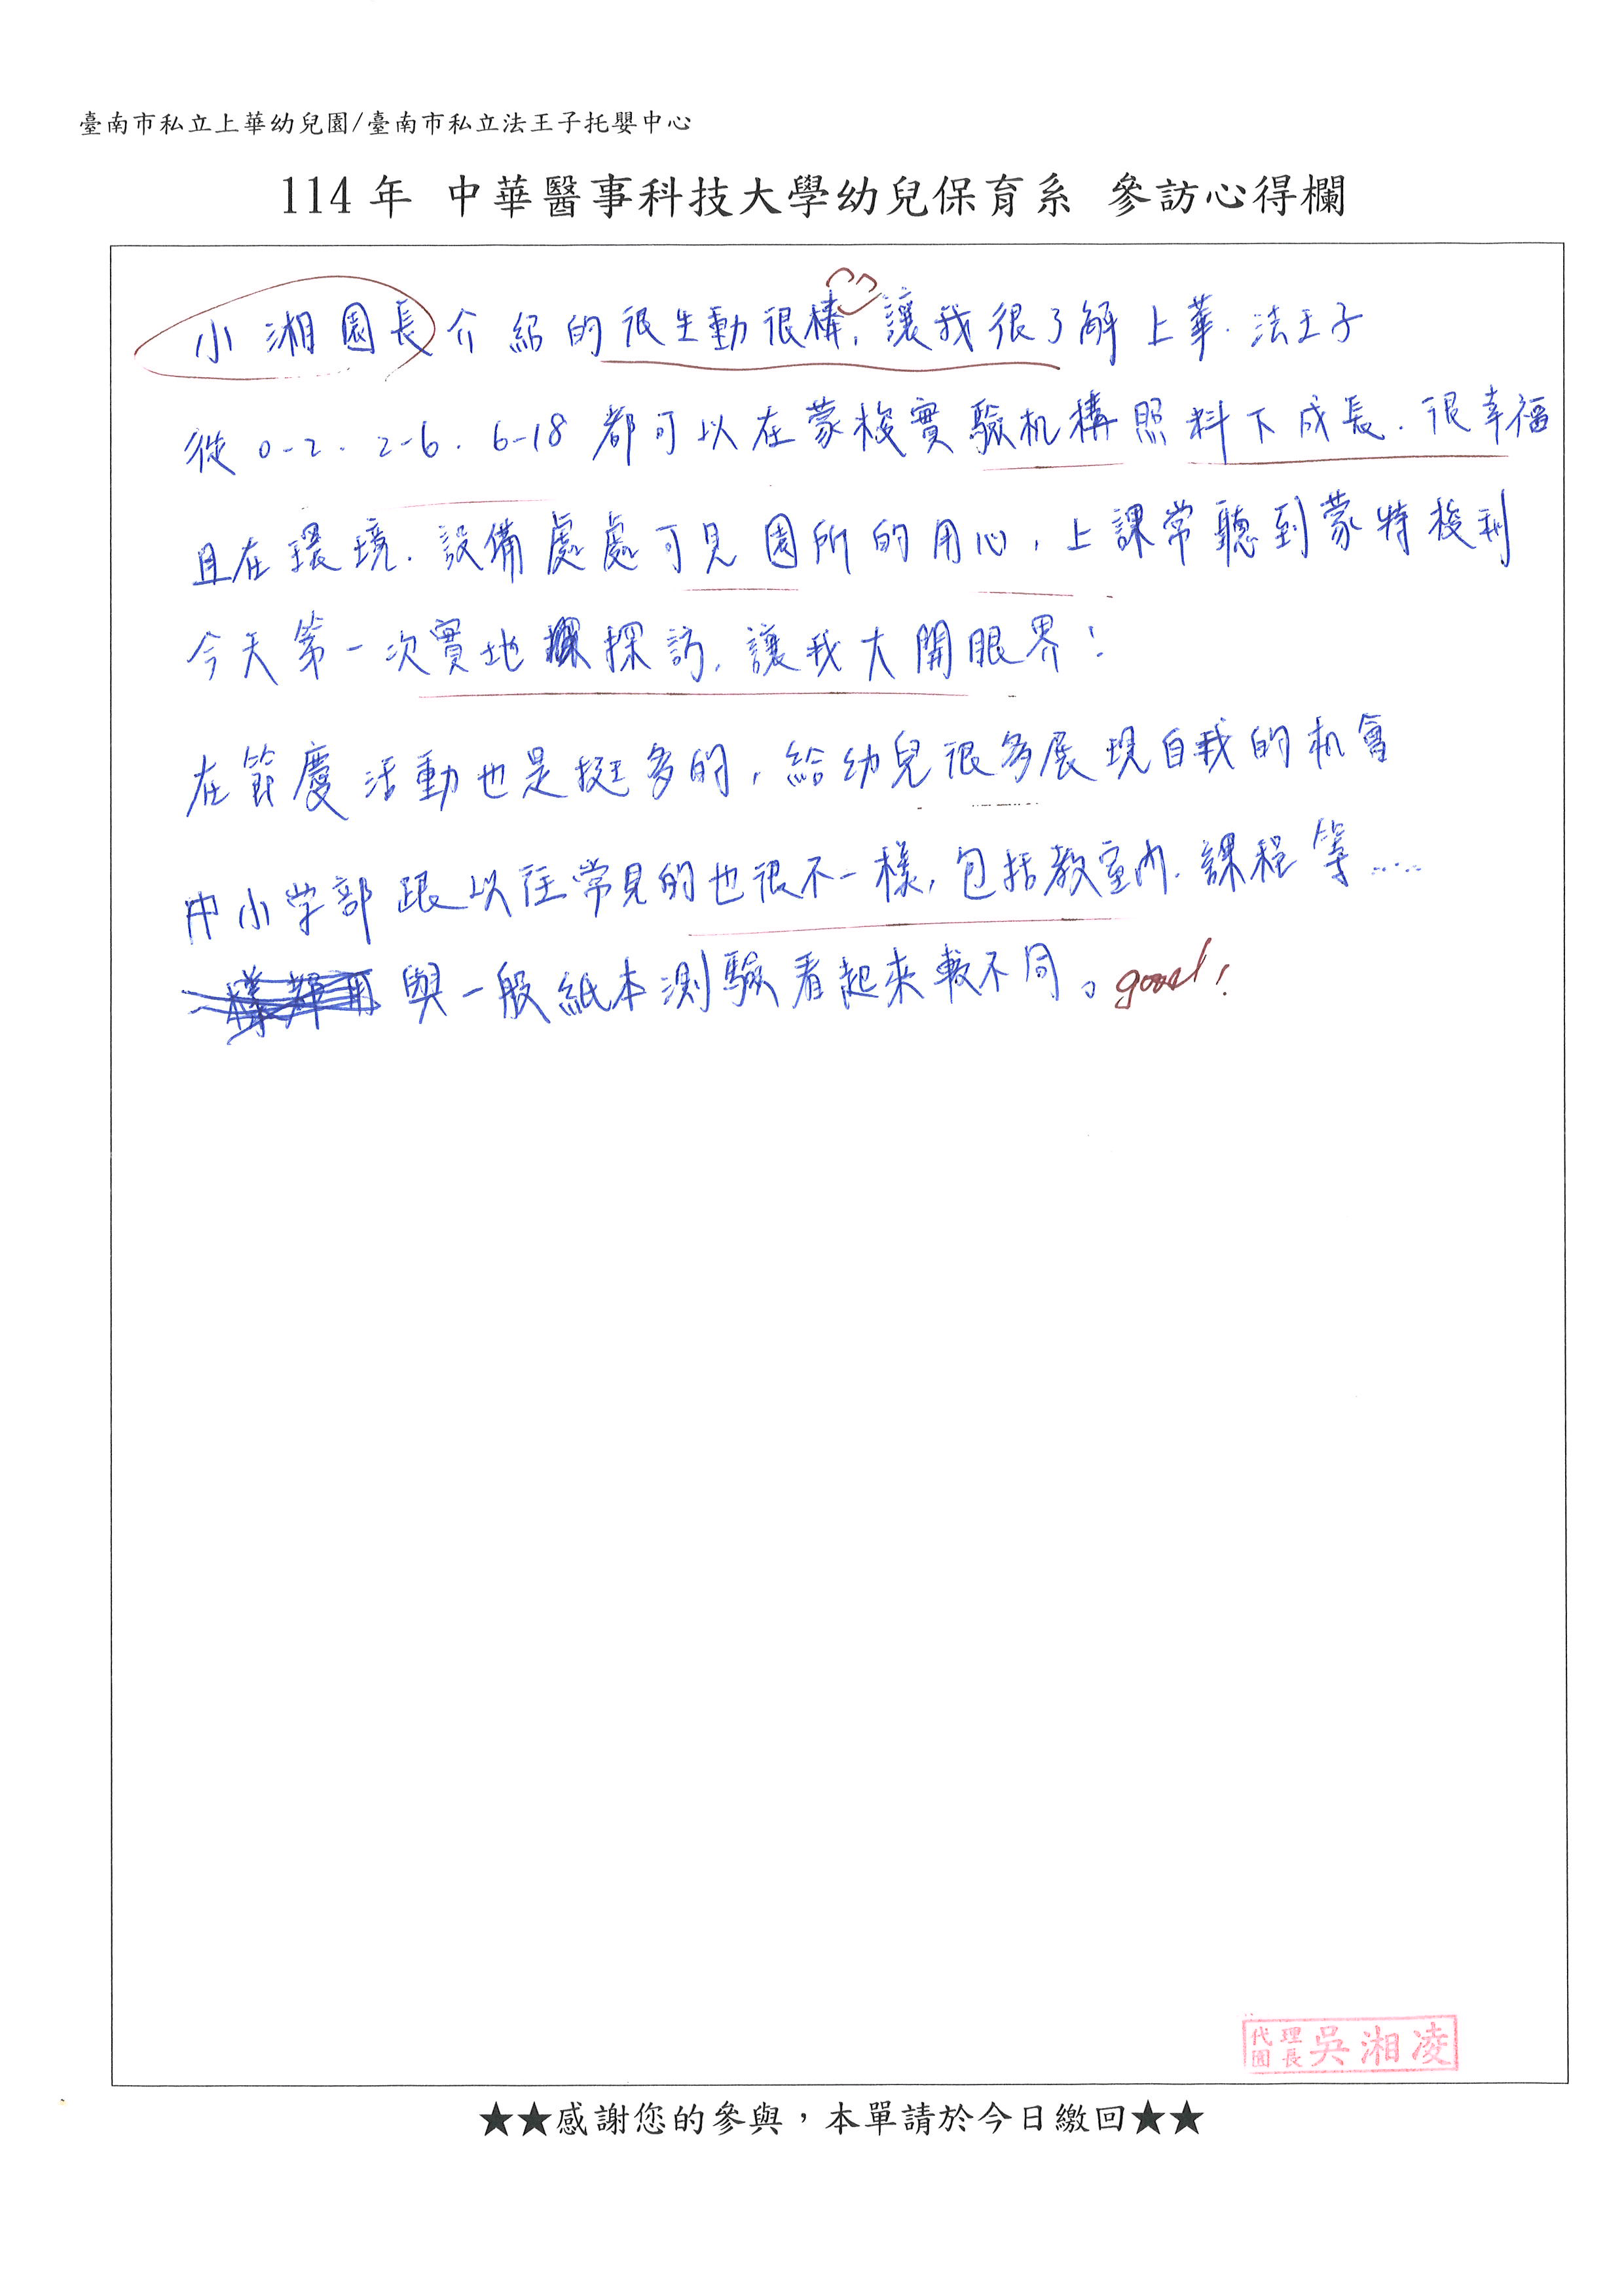 臺南市私立上華幼兒園/臺南市私立法王子托嬰中心
114 年 中華醫事科技大學幼兒保育系 參訪心得欄
小湘園長介紹的很生動很構,讓我很了解上華.法王子
從0-2.2-6.6-18都可以在蒙梭實驗机構照料下成長.很幸福
且在環境.設備處處可見園所的用心,上課常聽到蒙特梭利
今天第一次實地探訪,讓我大開眼界!
在節慶活動也是挺多的,給幼兒很多展現自我的机會
中小学部跟以往常見的也很不一樣,包括教室內.課程等.....
與一般紙本測驗看起來較不同。good!
代理園長 吳湘凌
★★感謝您的參與,本單請於今日繳回★★